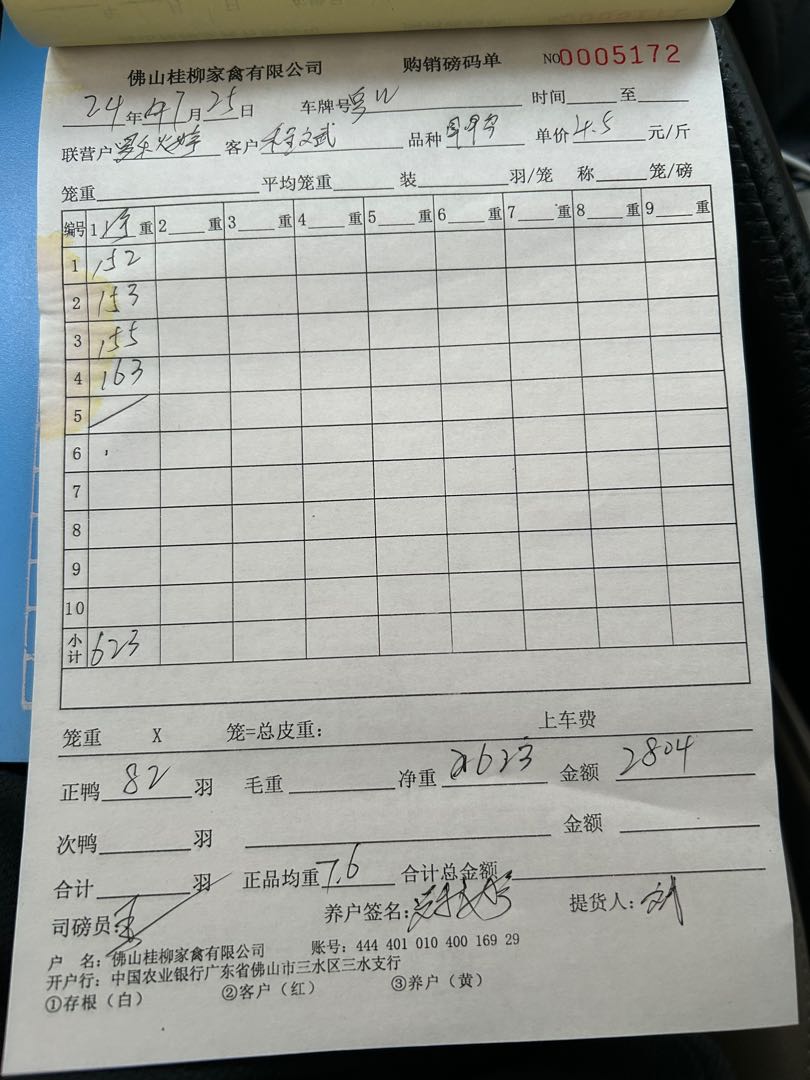 佛山桂柳家禽有限公司 购销磅码单 NO0005172
24年7月25日 车牌号 时间 至
联营户 客户 文武 品种 单价4.5元/斤
笼重 平均笼重 装 羽/笼 称 笼/磅
编号 1 重 2 重 3 重 4 重 5 重 6 重 7 重 8 重 9 重
1 152
2 153
3 155
4 163
5
6
7
8
9
10
小计 623
笼重 X 笼=总皮重: 上车费
正鸭 82 羽 毛重 净重 623 金额 2804
次鸭 羽 金额
合计 羽 正品均重 7.6 合计总金额
司磅员: 养户签名: 提货人: 刘
户 名: 佛山桂柳家禽有限公司 账号: 444 401 010 400 169 29
开户行: 中国农业银行广东省佛山市三水区三水支行
①存根(白) ②客户(红) ③养户(黄)